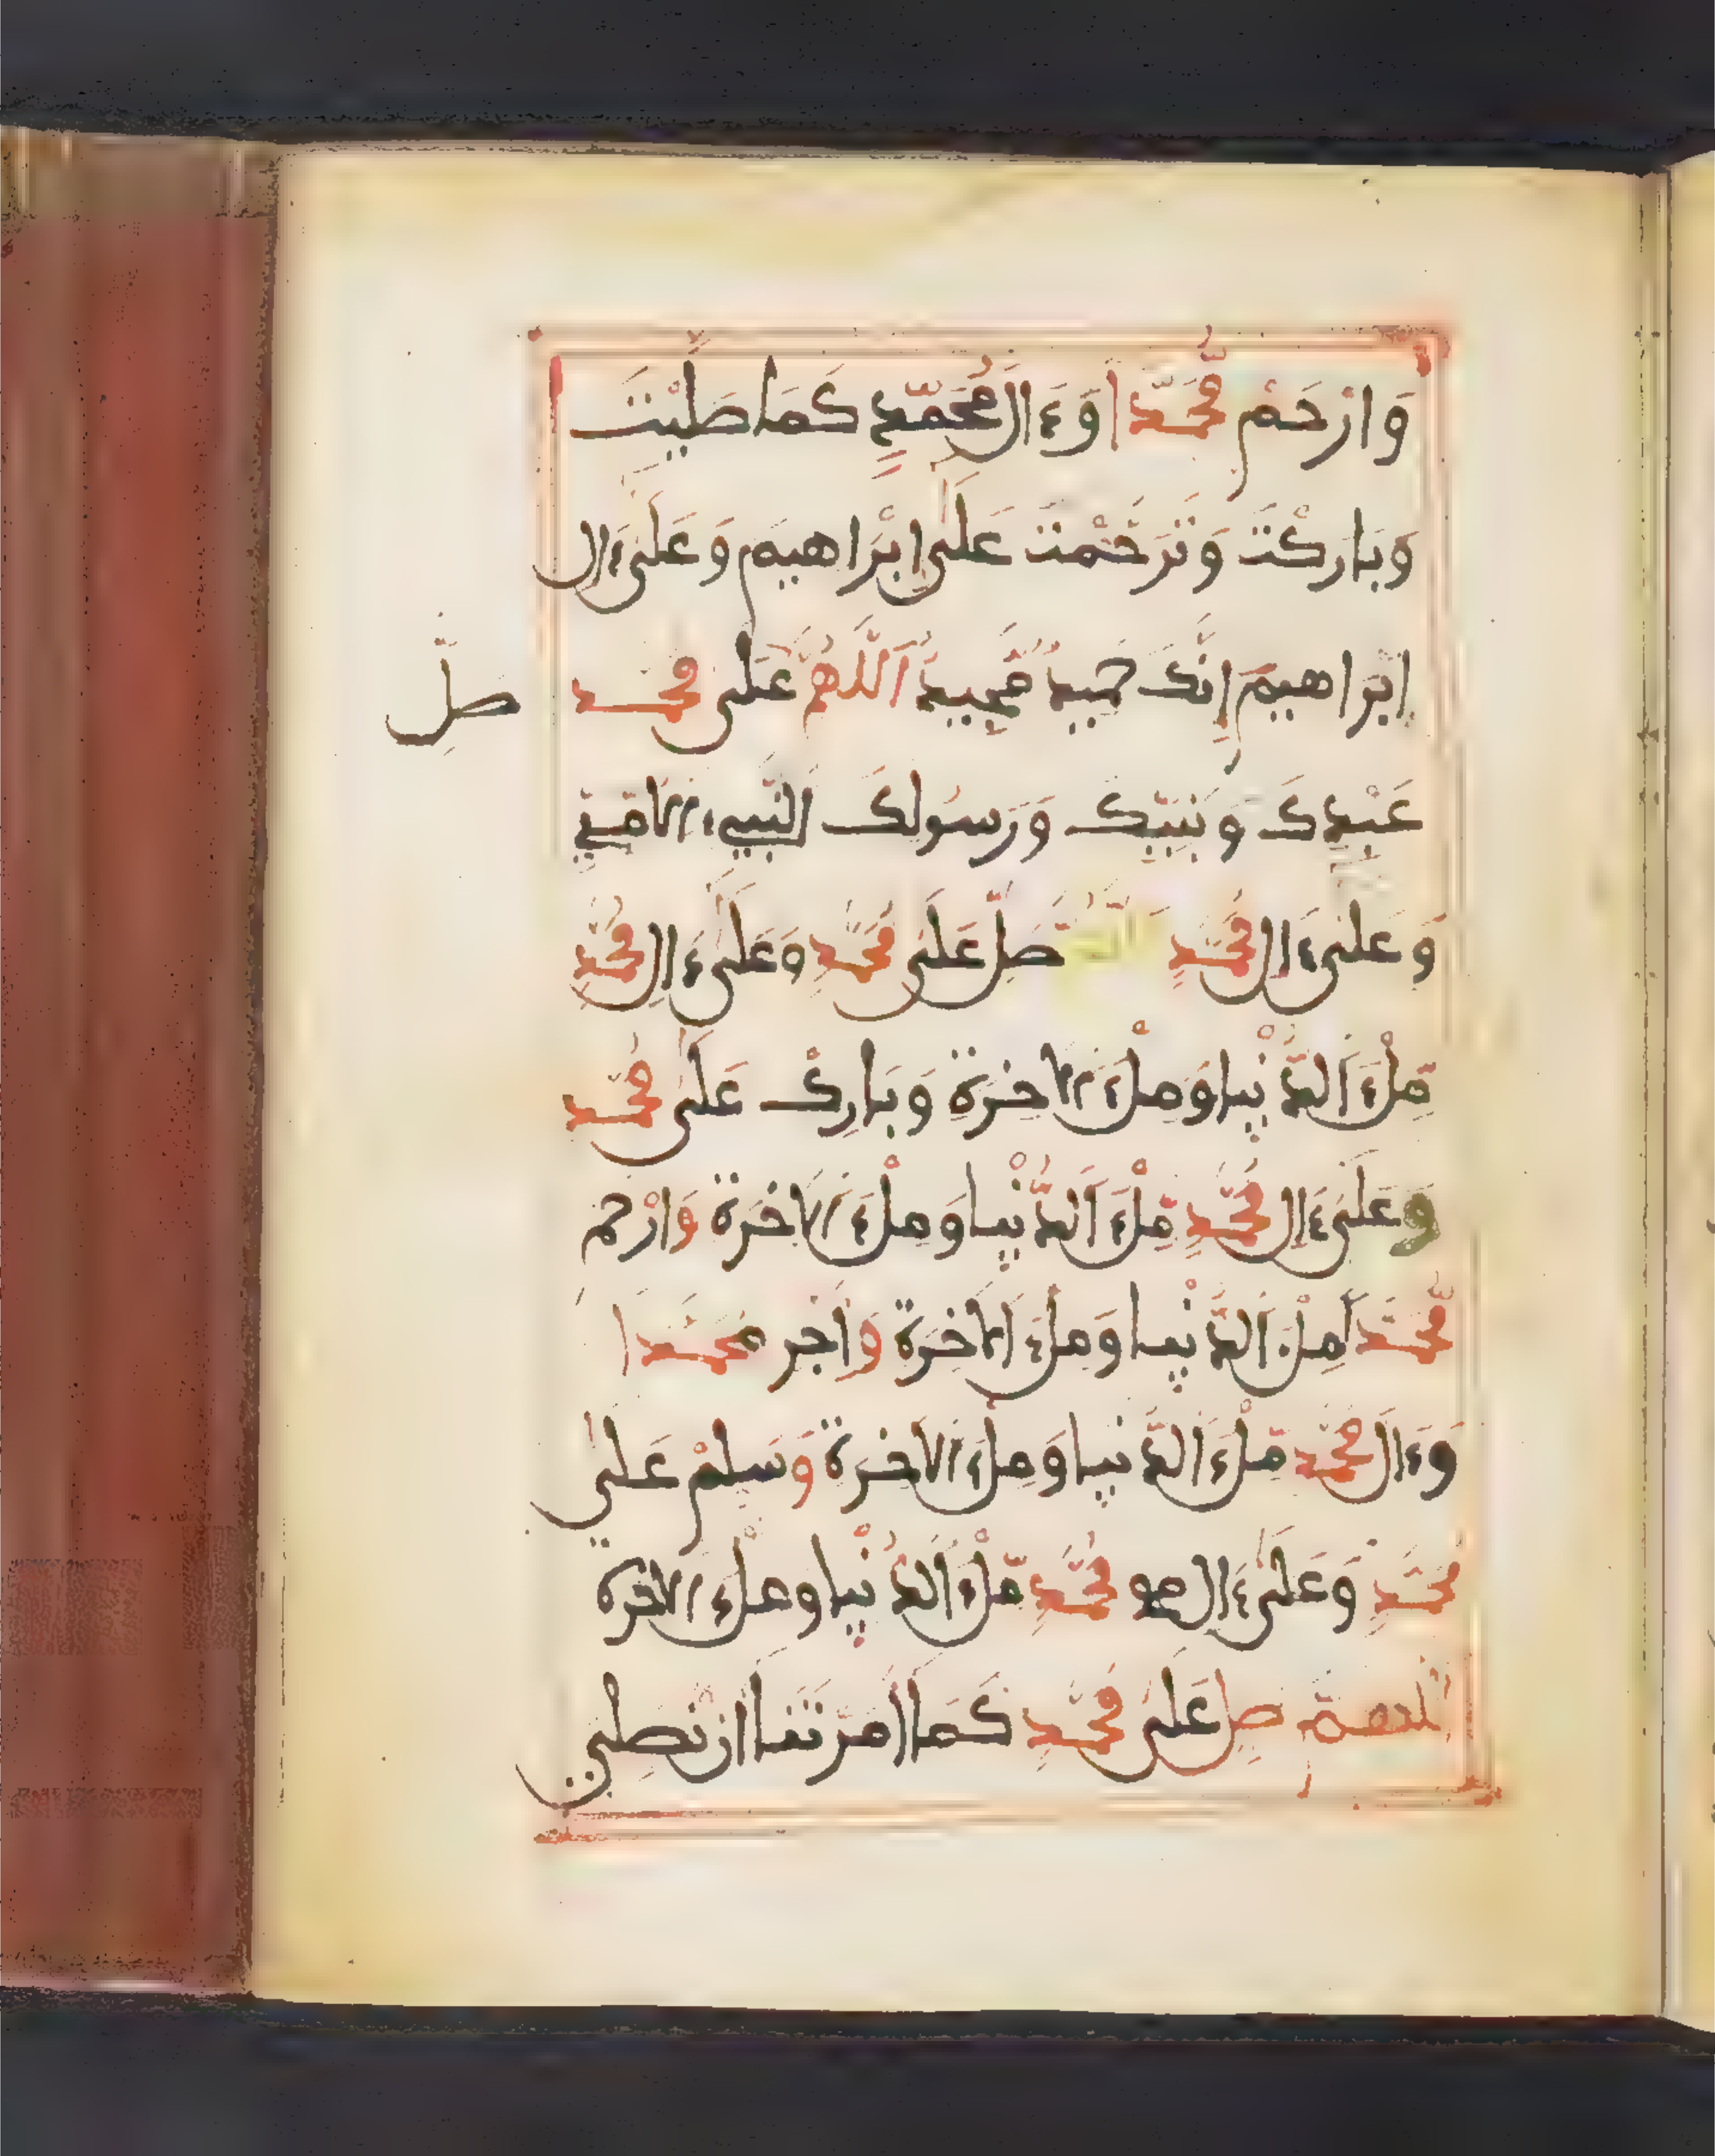 وَارْحَمْ مُّحَمَّدًا وَءَالَ مُحَمَّدٍ كَمَا صَلَّيْتَ
وَبَارَكْتَ وَتَرَحَّمْتَ عَلَى إِبْرَاهِيمَ وَعَلَى ءَالِ
إِبْرَاهِيمَ إِنَّكَ حَمِيدٌ مَّجِيدٌ اَللَّهُمَّ عَلَى مُحَمَّدٍ
صَلِّ
عَبْدِكَ وَنَبِيِّكَ وَرَسُولِكَ اَلنَّبِيءِ الْأُمِّيِّ
وَعَلَى ءَالِ مُحَمَّدٍ اَللَّهُمَّ صَلِّ عَلَى مُحَمَّدٍ وَعَلَى ءَالِ مُحَمَّدٍ
مِّلْءَ اَلدُّنْيَا وَمِلْءَ الْآخِرَةِ وَبَارِكْ عَلَى مُحَمَّدٍ
وَعَلَى ءَالِ مُحَمَّدٍ مِّلْءَ اَلدُّنْيَا وَمِلْءَ الْآخِرَةِ وَارْحَمْ
مُّحَمَّدًا مِلْءَ اَلدُّنْيَا وَمِلْءَ الْآخِرَةِ وَاَجْرِ مُحَمَّدًا
وَءَالَ مُحَمَّدٍ مِّلْءَ اَلدُّنْيَا وَمِلْءَ الْآخِرَةِ وَسَلِّمْ عَلَى
مُحَمَّدٍ وَعَلَى ءَالِ مُحَمَّدٍ مِّلْءَ اَلدُّنْيَا وَمِلْءَ الْآخِرَةِ
اَللَّهُمَّ صَلِّ عَلَى مُحَمَّدٍ كَمَا أَمَرْتَنَا أَنْ نُصَلِّيَ